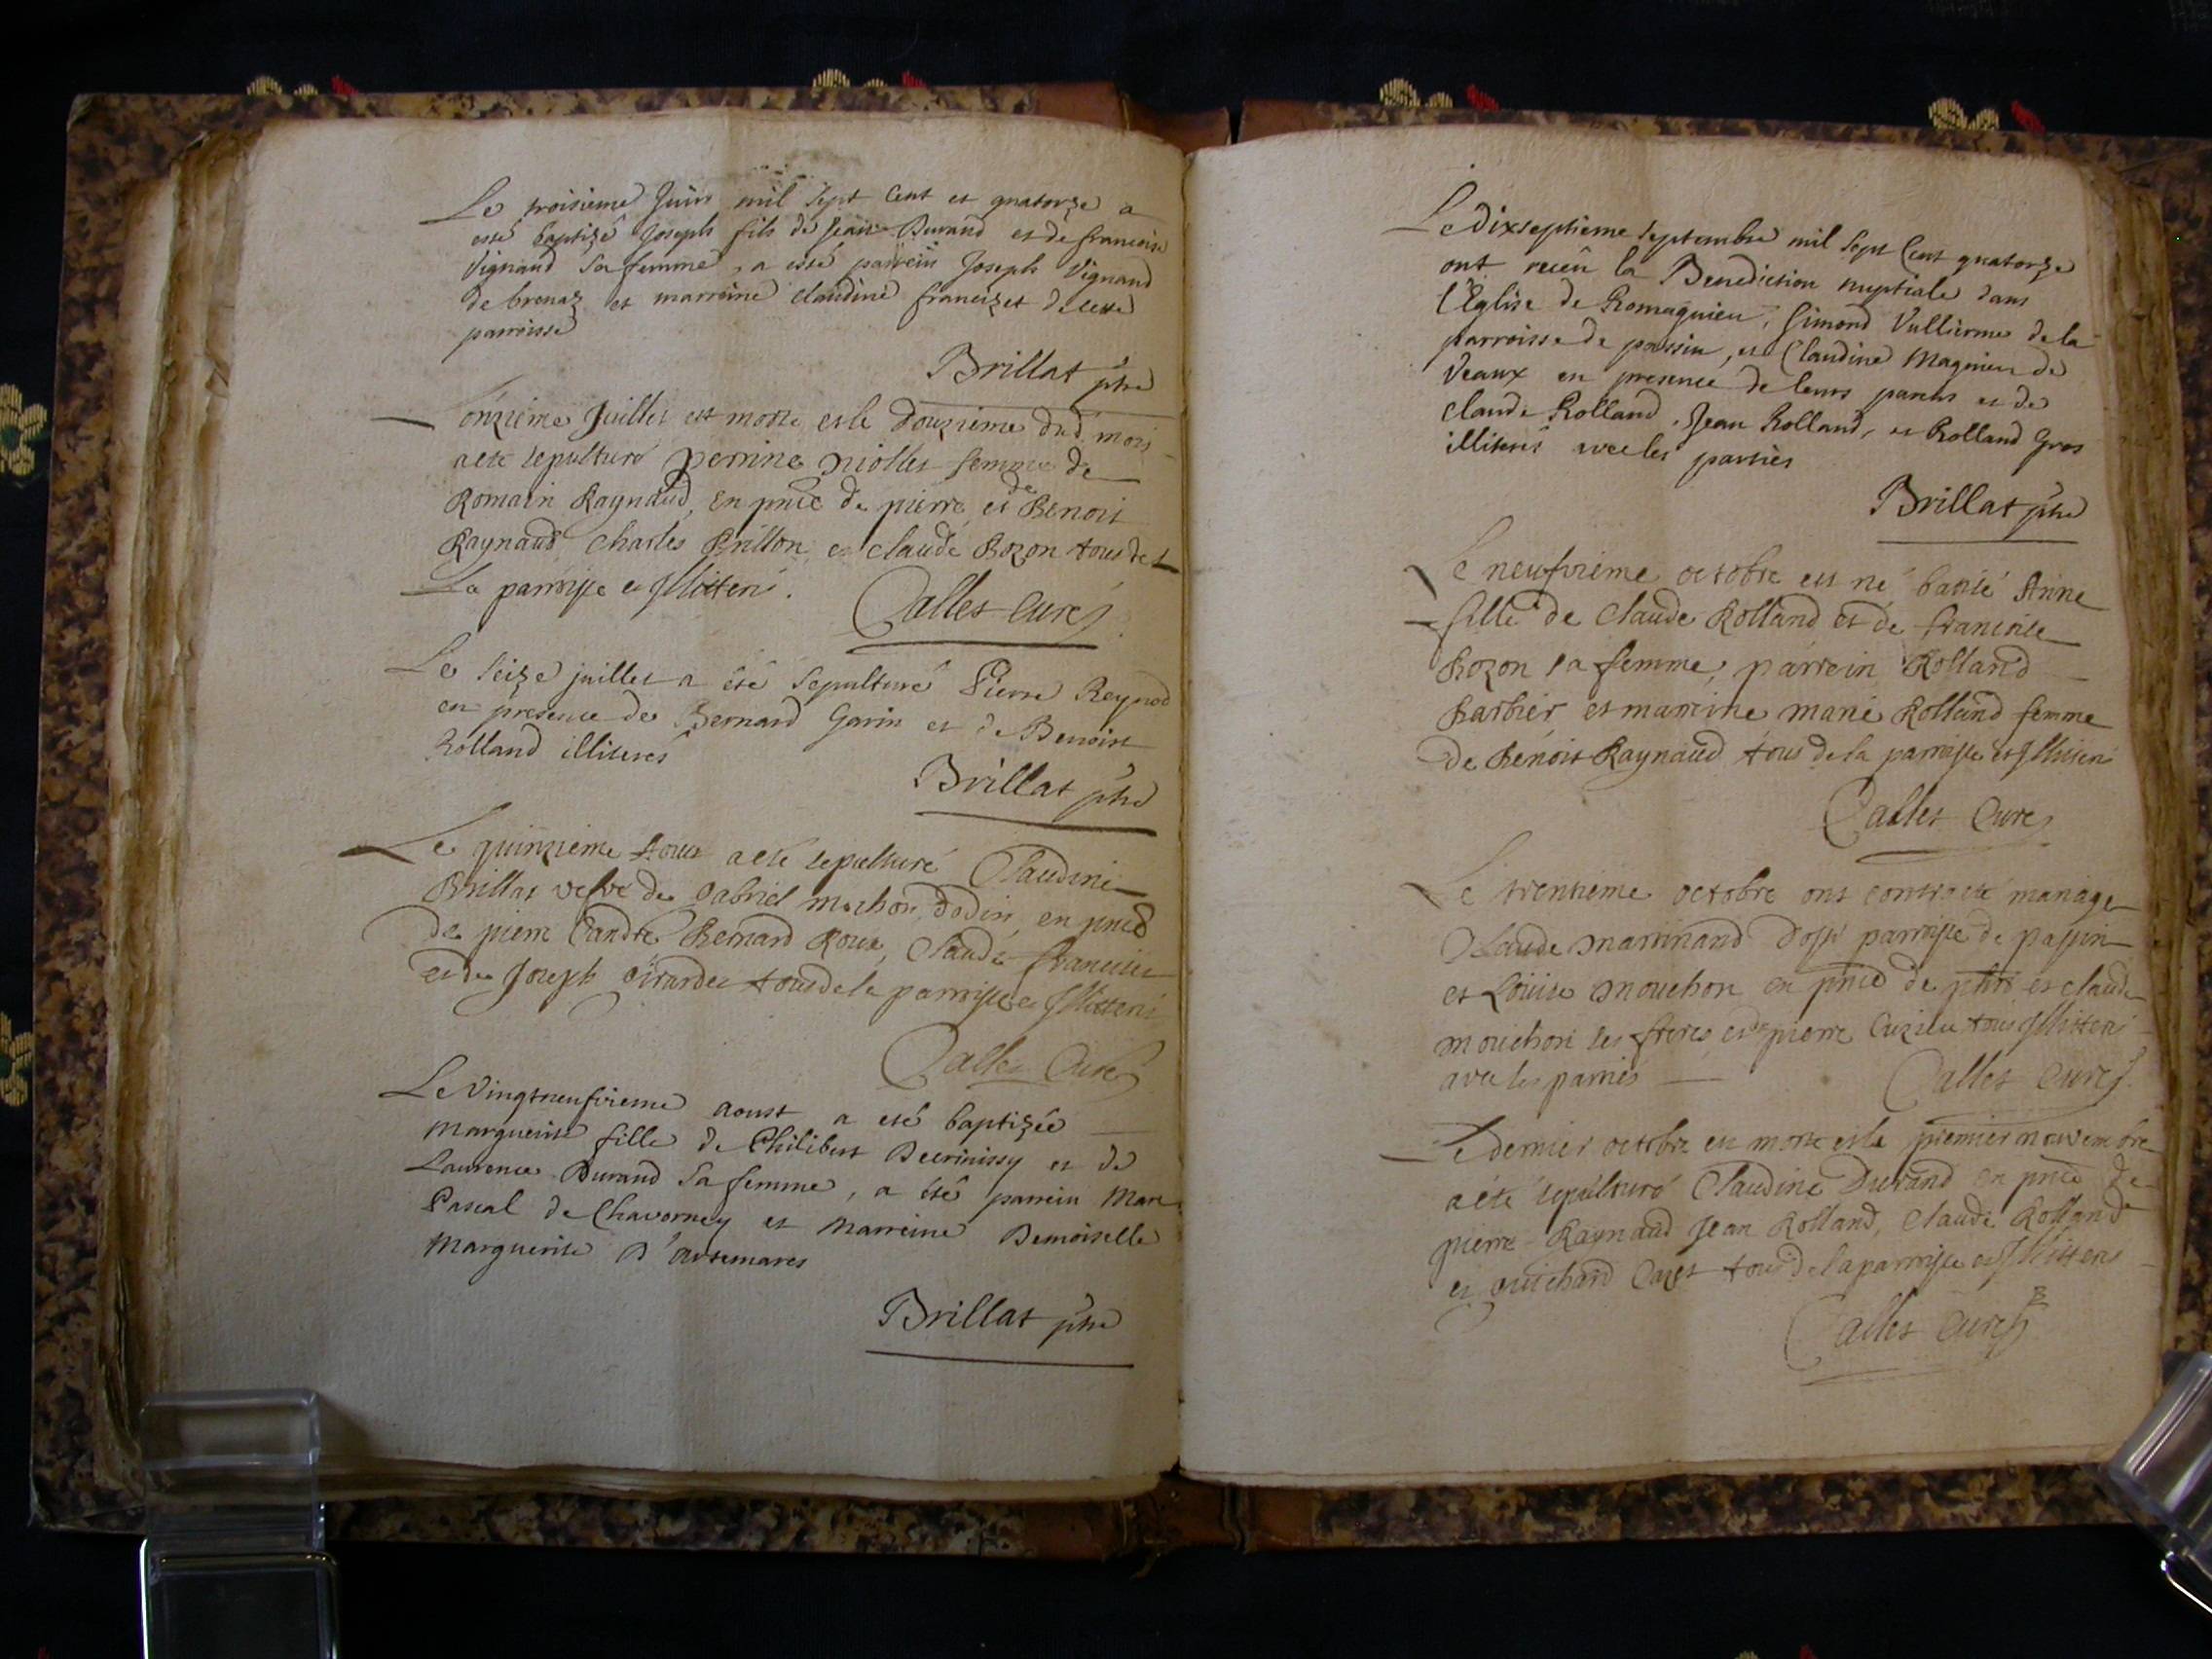 Le troisieme Juin mil sept Cent et quatorze a
esté baptizé Joseph fils de Jean Durand et de francoise
Vignand Sa femme, a esté parrein Joseph Vignand
de brenaz et marreine Claudine francizet de cette
parroisse
Brillat ptre
onzieme Juillet est morte et le douzieme dud. mois
a ete sepulturé perrine niollet femme de
Romain Raynaud, en pnce de pierre et de Benoit
Raynaud Charles Brillon et Claude Bozon tous de
La parroisse et Illitteré.
Callet Curé
Le Seize juillet a été Sepulturé Pierre Reynod
en presence de Bernard Garin et de Benoist
Rolland illiterés
Brillat ptre
Le quinzieme Aoust a eté sepulturé Claudine
Brillat vefve de Gabriel mochon dodin, en pnce
de pierre Bernard Roux, Claude franciset
et de Joseph Girardet tous de la parroisse et Illitteré
Callet Curé
Le Vingtneufvieme aoust a eté baptizée
Marguerite fille de Philibert Decrinissy et de
Laurence Durand Sa femme, a été parrein Marc
Pascal de Chavorney et Marreine Demoiselle
Marguerite D'Artemares
Brillat ptre
Le Dixseptieme Septembre mil Sept Cent quatorze
ont receû la Benediction nuptiale dans
l'Eglise de Romagnieu, Simond Vullierme de la
parroisse de passin, et Claudine Magnieu de
Veaux en presence de leurs parents et de
Claude Rolland, Jean Rolland, et Rolland Gros
illiterés avec les parties
Brillat ptre
Le neufvieme octobre est né batisé Anne
fille de Claude Rolland et de francoise
Bozon sa femme, parrein Rolland
Barbier et marreine marie Rolland femme
de Benoit Raynaud tous de la parroisse et Illiteré
Callet Curé
Le trentieme octobre ont contracté mariage
Claude martinand d'ossi parroisse de passin
et Louise mouchon en pnce de et claude
mouchon ses freres et de pierre Cuzieu tous Illitteré
avec les parties
Callet Curé
Le dernier octobre est morte et le premier novembre
a eté sepulturé Claudine Durand en pnce de
pierre Raynaud Jean Rolland, Claude Rolland
et guichard Cazet tous de la parroisse et Illitteré
Callet Curé